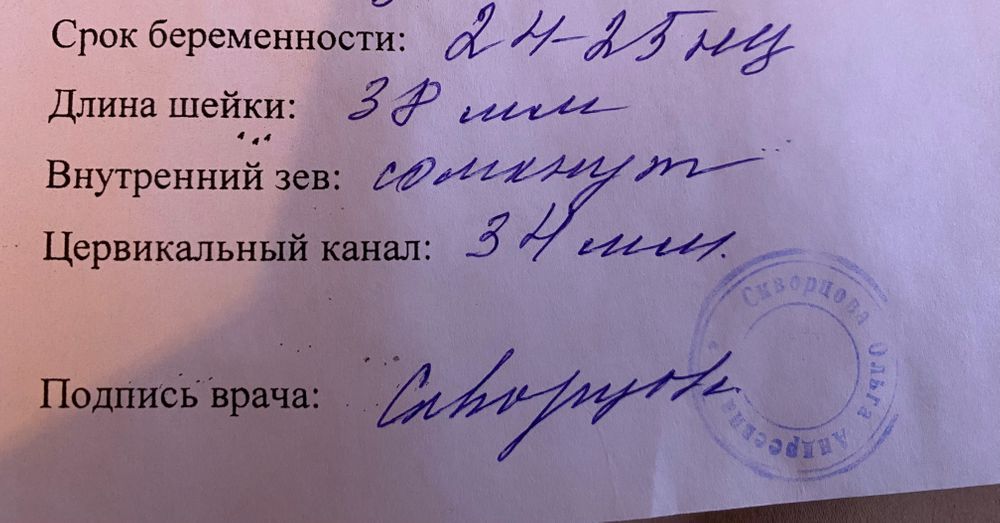 Срок беременности: 24-25 нед
Длина шейки: 38 мм
Внутренний зев: сомкнут
Цервикальный канал: 34 мм.
Подпись врача: Скворцов
Скворцова Ольга Андреевна